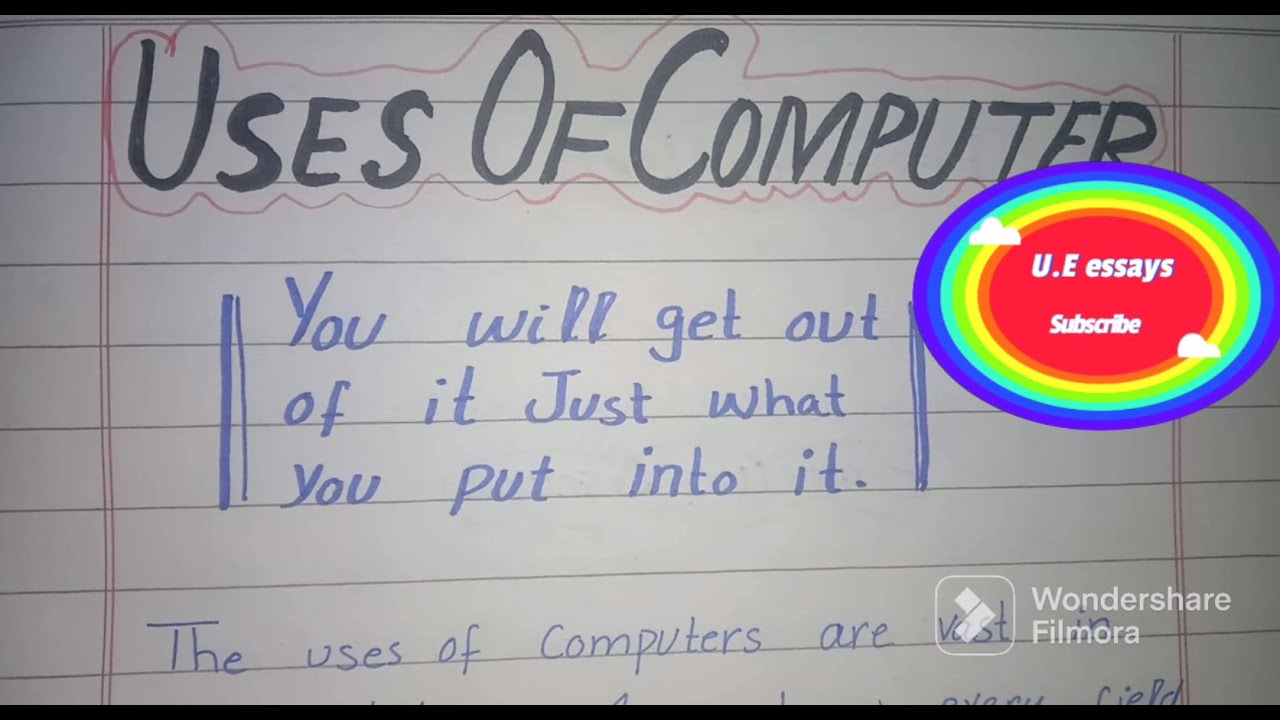 USES OF COMPUTER
U.E essays
Subscribe
You will get out
of it Just what
you put into it.
Wondershare
Filmora
The uses of Computers are vast in
every field